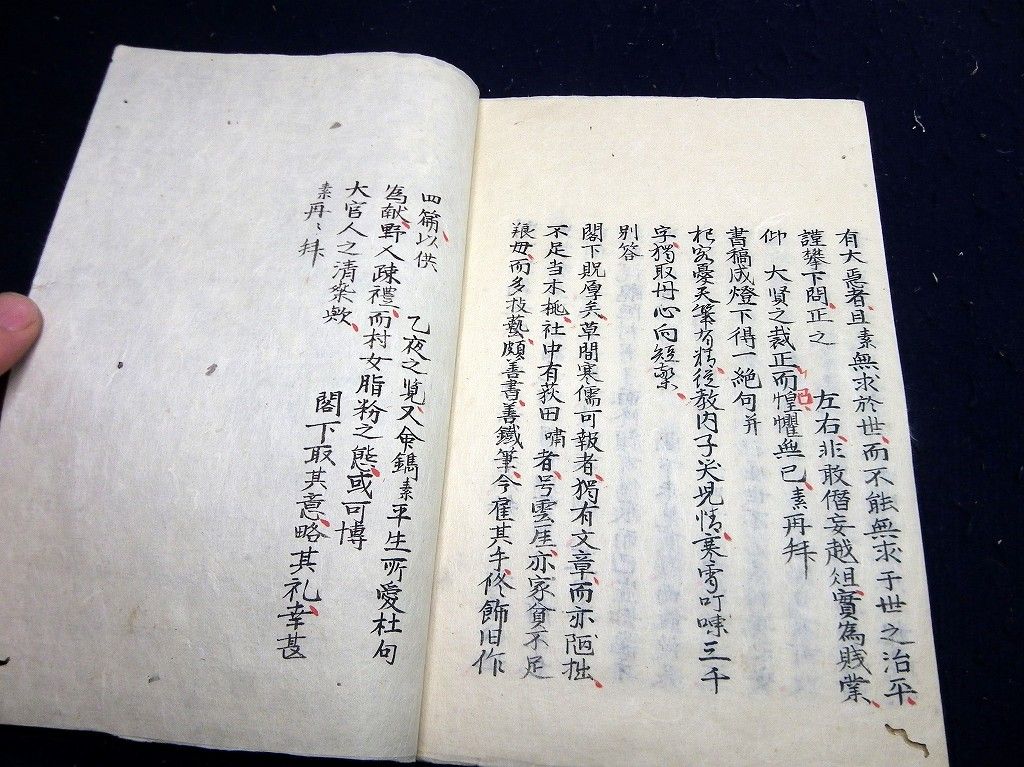 有大惡者、且素無求於世、而不能無求于世之治平、
謹攀下問、正之　左右、非敢僭妄越俎、實為賤業、
仰　大賢之裁正而惶懼無已、素再拜
書稿成燈下得一絶句并
杞客憂天筆有精、從教內子笑兒情、寒宵叮㖦三千
字、獨取丹心向短檠、
別答
閣下貺厚矣、草間寒儒可報者、獨有文章、而亦陋拙、
不足当木桃、社中有荻田嘯者、号雲厓、亦家貧不足
養母、而多技藝、頗善書、善鐵筆、今雇其手、修飾旧作
四篇、以供
乙夜之覧、又命鐫素平生所愛杜句
為献、野人疎禮、而村女脂粉之態、或可博
大官人之清粲歟、　閣下取其意、略其礼、幸甚
素再〻拜